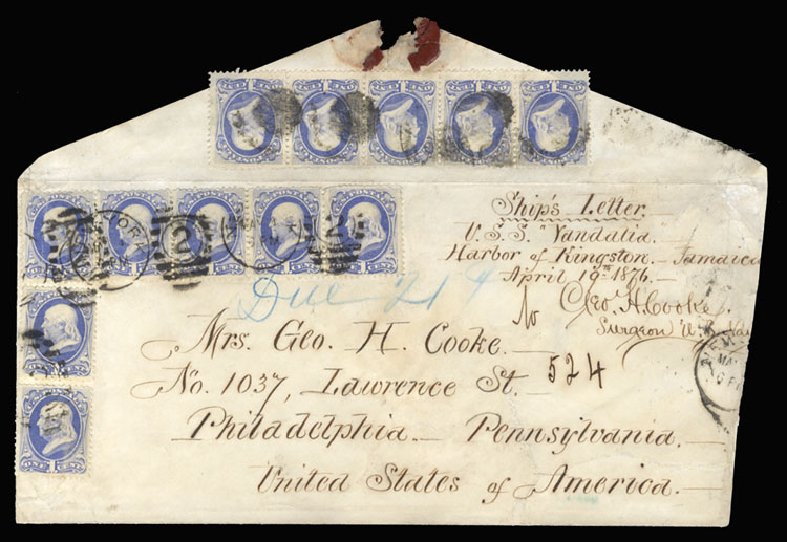 Ship's Letter.
U.S.S. "Vandalia.
Harbor of Kingston — Jamaica
April 19th 1876.
Due 21
Geo. H. Cooke.
Surgeon U.S. Navy
Mrs. Geo. H. Cooke.
No. 1037, Lawrence St.
524
Philadelphia — Pennsylvania.
United States of America.
2
2
NEW
MA
ONE CENT